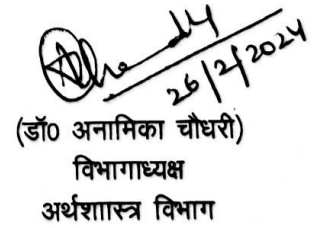 26/2/2024
(डॉ0 अनामिका चौधरी)
विभागाध्यक्ष
अर्थशाास्त्र विभाग